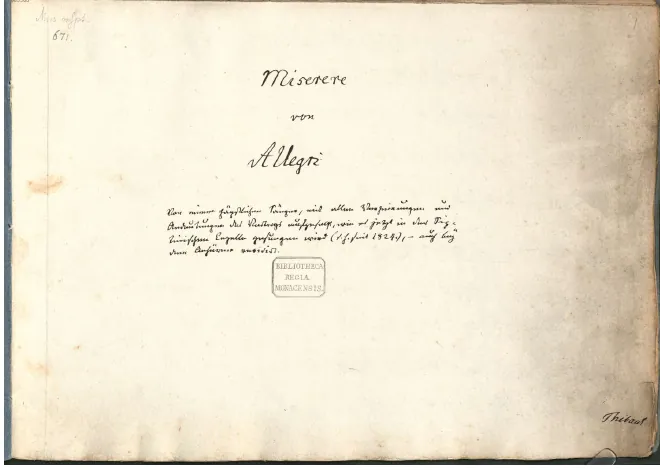 Mus. mss.
671.
1
Miserere
von
Allegri
Von einem päpstlichen Sänger, mit allen Verzierungen und
Andeutungen des Vortrags aufgesetzt, wie es jetzt in der Six-
tinischen Capelle gesungen wird (d. h. seit 1824), – auch bey
dem
BIBLIOTHECA
REGIA
MONACENSIS.
Thibaut